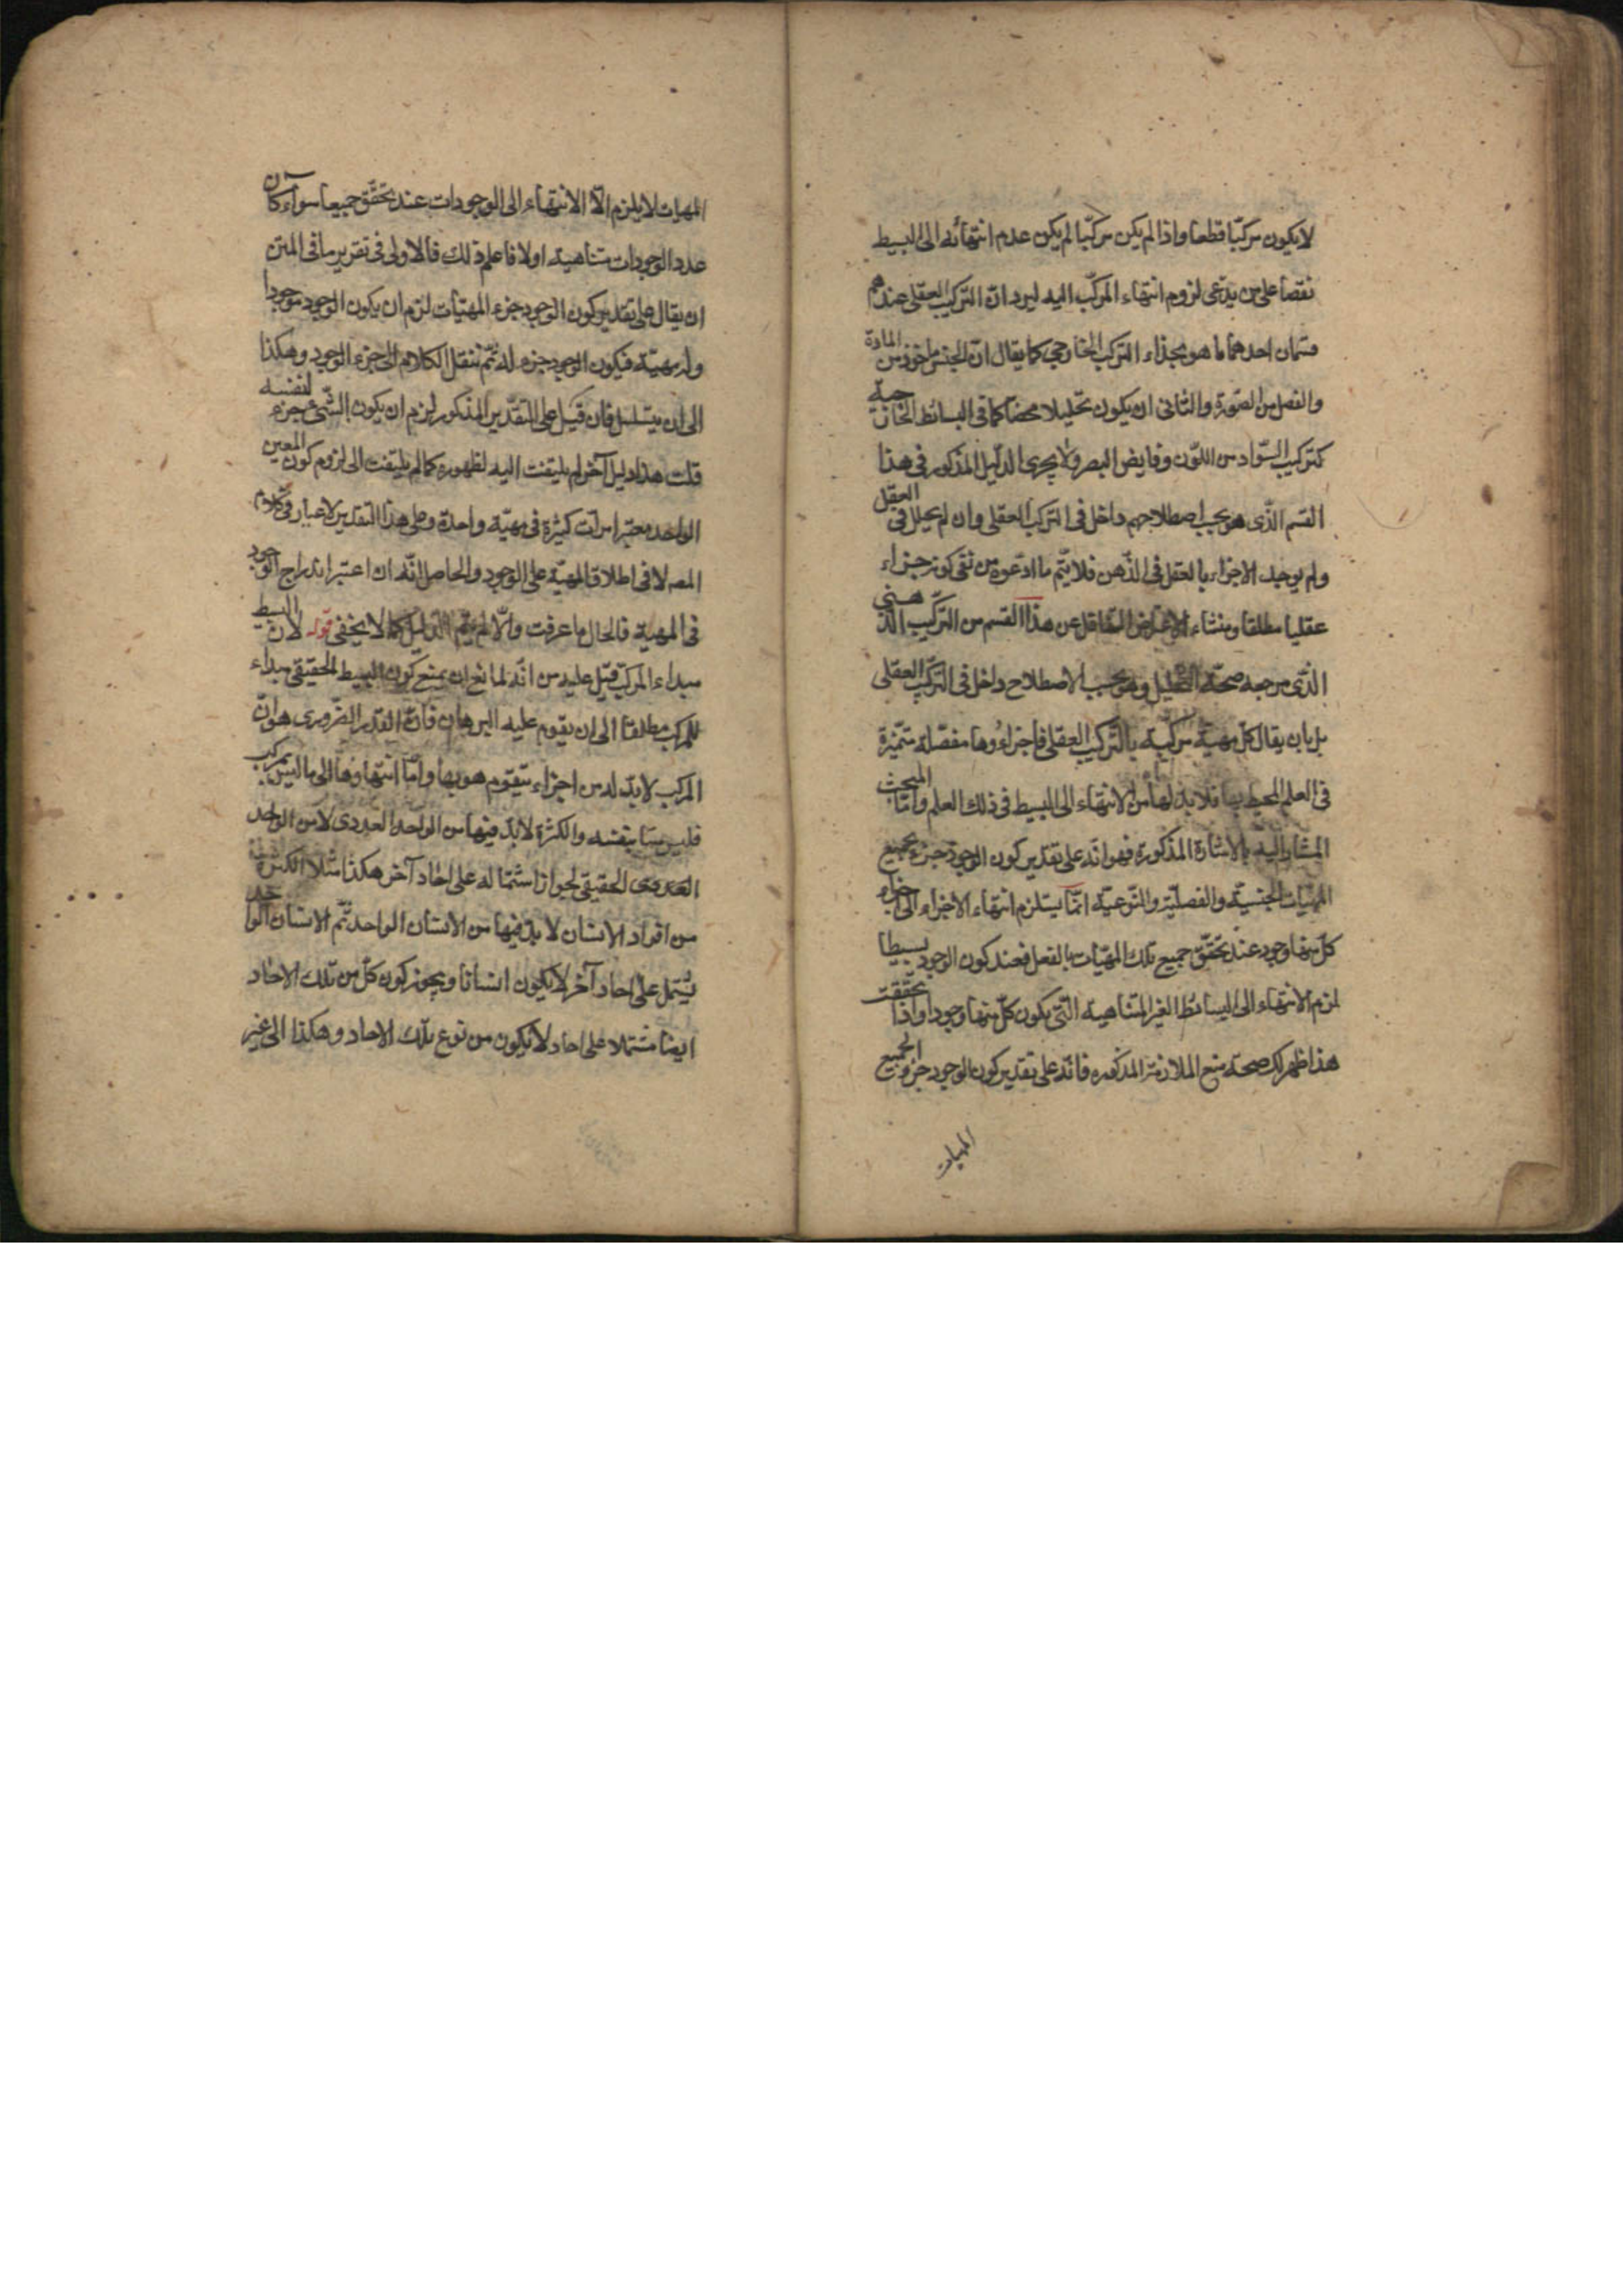 لا يكون مركبّا قطعا واذا لم يكن مركبّا لم يكن عدم انتهائه الى البسيط
نقضا على من يدّعى لزوم انتهاء المركّب اليه ليرد انّ التركيب العقلى عندهم
قسمان احدهما ما هو بحذاء التركيب الخارجى كما يقال انّ الجنس ماخوذ من المادة
والفصل من الصّورة والثانى ان يكون تحليلا محضا كما فى البسائط الخارجية
كتركيب السّواد من اللّون وقابض البصر ولا يجرى الدليل المذكور فى هذا
القسم الذّى هو بحسب اصطلاحهم داخل فى التركيب العقلى وان لم يحلل فى العقل
ولم يوجد الاجزاء بالعقل فى الذّهن فلا يتّم ما ادّعوه من نفى كونه جزاء
عقليا مطلقا ومنشاء الاعتراض التغافل عن هذا القسم من التركّيب الذهنى
الذّى مرجعه صحّة التحليل وهو بحسب الاصطلاح داخل فى التركّب العقلى
بل بان يقال كلّ مهيّة مركّبة بالتّركيب العقلى فاجزاءُوها مفصّلة متميّزة
فى العلم المحيط بها فلا بدّ لها من الانتهاء الى البسيط فى ذلك العلم وامّا المبحث
المشار اليه بالاشارة المذكورة فهو انّه على تقدير كون الوجود جزء بجميع
المهيّات الجنسيّة والفصليّة والنّوعيّة انمّا يستلزم انتهاء الاجزاء الى اجزاء
كلّ منها وجود عند تحقّق جميع تلك المهيّات بالفعل فعند كون الوجود بسيطا
لزم الانتهاء الى البسائط الغير المتناهية التّى يكون كلّ منها وجودا واذا تحققت
هذا ظهر لك صحة منع الملازمة المذكوره فانّه على تقدير كون الوجود جزو الجميع
المهيات
المهيات لا يلزم الّا الانتهاء الى الوجودات عند تحقّق جميعا سواء كان
عدد الوجودات متناهية او لا فاعلم ذلك فالاولى فى تقرير ما فى المتن
ان يقال على تقدير كون الوجود جزء المهيّات لزم ان يكون الوجود موجودا
وله مهيّة فيكون الوجود جزء له ثمّ ننقل الكلام الى جزء الوجود وهكذا
الى ان يتسلسل فان قيل على التقدير المذكور لزم ان يكون الشّى جزء لنفسه
قلت هذا دليل آخر لم يلتفت اليه لظهوره كما لم يلتفت الى لزوم كون المعين
الواحد معتبرا مرّات كثيرة فى مهيّة واحدة وعلى هذا التقدير لا غبار فى كلام
المصه لا فى اطلاق المهيّة على الوجود والحاصل انّه ان اعتبر اندراج الوجود
فى المهية فالحال ما عرفت والّا لم يتم الدليل كما لا يخفى قوله لان البسيط
مبداء المركّب قيل عليه من انّه لمانع ان يمنع كون البسيط الحقيقى مبداء
للمركب مطلقا الى ان يقوم عليه البرهان فانّ القدر الضّرورى هو انّ
المركب لا بدّ له من اجزاء يتقوّم هو بها وامّا انتهاوها الى ما ليس بمركب
فليس بيّنا بنفسه والكثرة لا بدّ فيها من الواحد العددى لا من الواحد
العددى الحقيقى لجواز اشتماله على احاد آخر هكذا مثلا الكثرة
من افراد الانسان لا بدّ فيها من الانسان الواحد ثّم الانسان الواحد
يشتمل على احاد آخر لا يكون انسانا ويجوز كون كلّ من تلك الاحاد
ايضا مشتملا على احاد لا يكون من نوع تلك الاحاد وهكذا الى غير